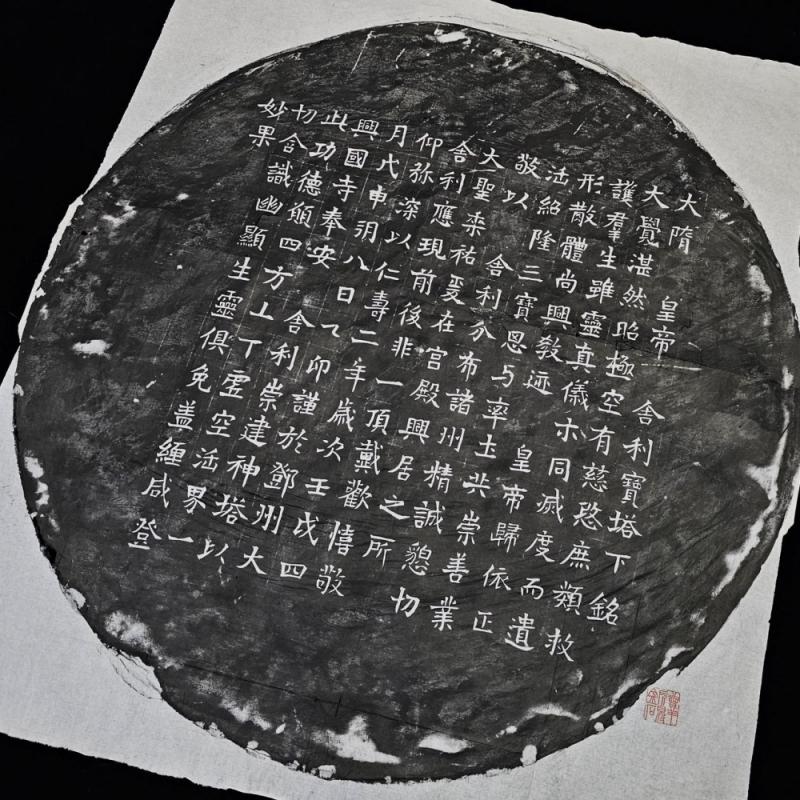 大隋　皇帝　舍利寶塔下銘
大覺湛然昭極空有慈愍庶類救
護羣生雖靈真儀亦同滅度而遺
形散體尚興教迹　皇帝歸依正
法紹隆三寶思与率土共崇善業
敬以　舍利分布諸州精誠懇切
大聖垂祐爰在宮殿興居之所
舍利應現前後非一頂戴歡憘敬
仰弥深以仁壽二年歲次壬戌四
月戊申朔八日乙卯謹於鄧州大
興國寺奉安　舍利崇建神塔以
此功德願四方上下虛空法界一
切含識幽顯生靈俱免蓋纏咸登
妙果